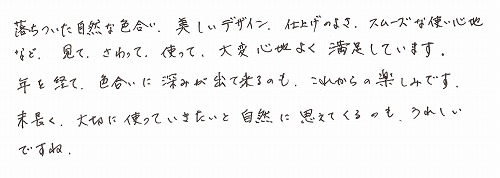 落ちついた自然な色合い、美しいデザイン、仕上げのよさ、スムーズな使い心地
など、見て、さわって、使って、大変心地よく満足しています。
年を経て、色合いに深みが出て来るのも、これからの楽しみです。
末長く、大切に使っていきたいと自然に思えてくるのも、うれしい
ですね。